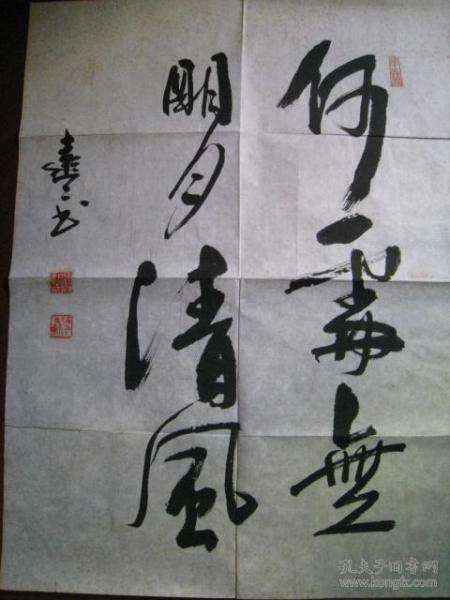 何處無
朙月清風
孔夫子旧书网
www.kongfz.com